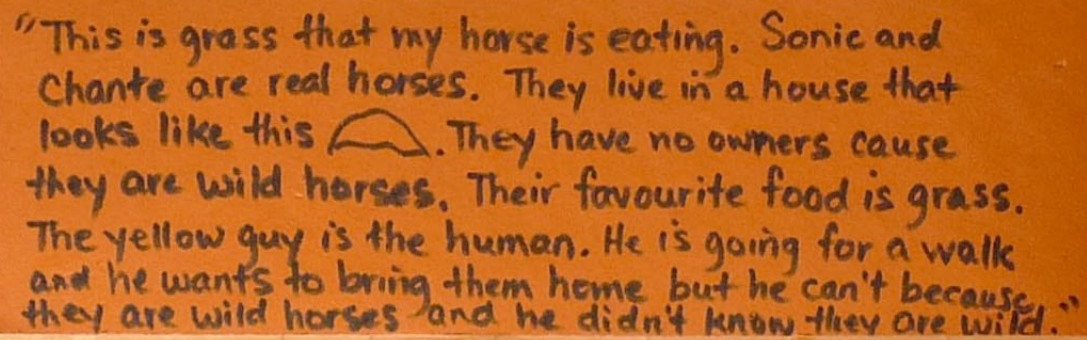 "This is grass that my horse is eating. Sonic and
Chante are real horses. They live in a house that
looks like this . They have no owners cause
they are wild horses. Their favourite food is grass.
The yellow guy is the human. He is going for a walk
and he wants to bring them home but he can't because
they are wild horses and he didn't know they are wild."